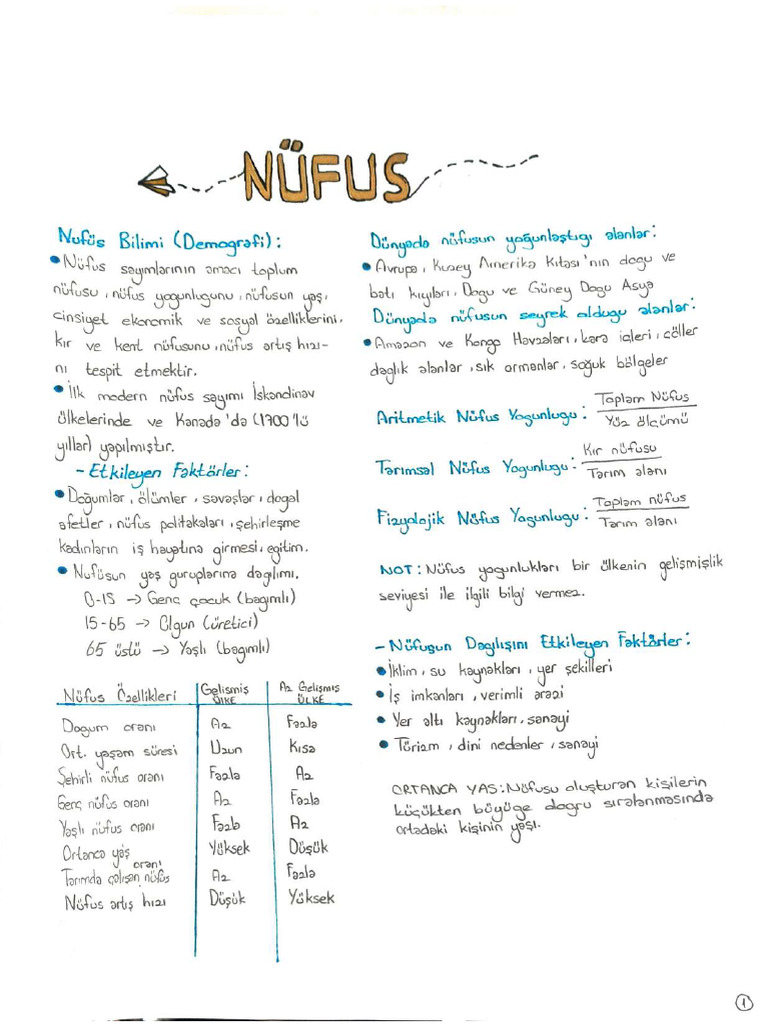 NÜFUS
Nufüs Bilimi (Demografi):
• Nüfus sayımlarının amacı toplum
nüfusu, nüfus yogunlugunu, nüfusun yaş,
cinsiyet ekonomik ve sosyal özelliklerini,
kır ve kent nüfusunu, nüfus artış hızı-
nı tespit etmektir.
• İlk modern nüfus sayımı İskandinav
ülkelerinde ve Kanada'da (1700'lü
yıllar) yapılmıştır.
- Etkileyen Faktörler:
• Doğumlar, ölümler, savaşlar, dogal
afetler, nüfus politakaları, şehirleşme
kadınların iş hayatına girmesi, egitim.
• Nufüsun yaş guruplarına dagılımı.
0-15 → Genç çocuk (bagımlı)
15-65 → Olgun (üretici)
65 üstü → Yaşlı (bagımlı)
Nüfus Özellikleri Gelismiş ÜLKE Az Gelişmiş ÜLKE
Dogum oranı Az Fazla
Ort. yaşam süresi Uzun Kısa
Şehirli nüfus oranı Fazla Az
Genç nüfus oranı Az Fazla
Yaşlı nüfus oranı Fazla Az
Ortanca yaş Yüksek Düşük
Tarımda çalışan nüfus oranı Az Fazla
Nüfus artış hızı Düşük Yüksek
Dünyada nüfusun yoğunlaştıgı alanlar:
• Avrupa, Kuzey Amerika Kıtası'nın dogu ve
batı kıyıları, Dogu ve Güney Dogu Asya
Dünyada nüfusun seyrek oldugu alanlar:
• Amazon ve Kongo Havzaları, kara içleri, çöller
daglık alanlar, sık ormanlar, soğuk bölgeler
Aritmetik Nüfus Yogunlugu: Toplam Nüfus
Yüz ölçümü
Tarımsal Nüfus Yogunlugu: Kır nüfusu
Tarım alanı
Fizyolojik Nüfus Yogunlugu: Toplam nüfus
Tarım alanı
NOT: Nüfus yogunlukları bir ülkenin gelişmişlik
seviyesi ile ilgili bilgi vermez.
- Nüfusun Dagılışını Etkileyen Faktörler:
• İklim, su kaynakları, yer şekilleri
• İş imkanları, verimli arazi
• Yer altı kaynakları, sanayi
• Türizm, dini nedenler, sanayi
ORTANCA YAS: Nüfusu oluşturan kişilerin
küçükten büyüge dogru sıralanmasında
ortadaki kişinin yaşı.
1